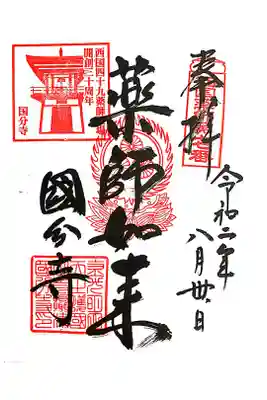 奉拝
令和二年
八月廿日
薬師如来
國分寺
西国四十九薬師霊場
開創三十周年
国分寺